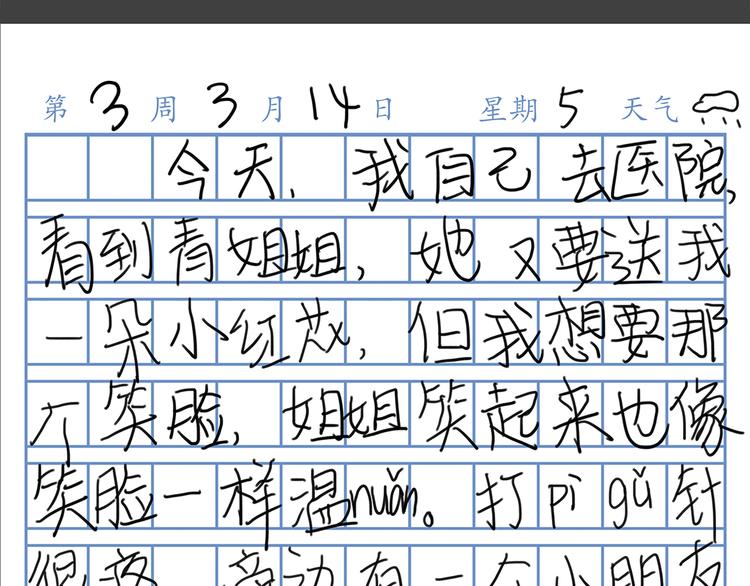 第3周3月14日 星期5 天气
今天,我自己去医院,
看到青姐姐,她又要送我
一朵小红花,但我想要那
个笑脸,姐姐笑起来也像
笑脸一样温nuǎn。打pì gǔ针
很疼 旁边有一个小朋友